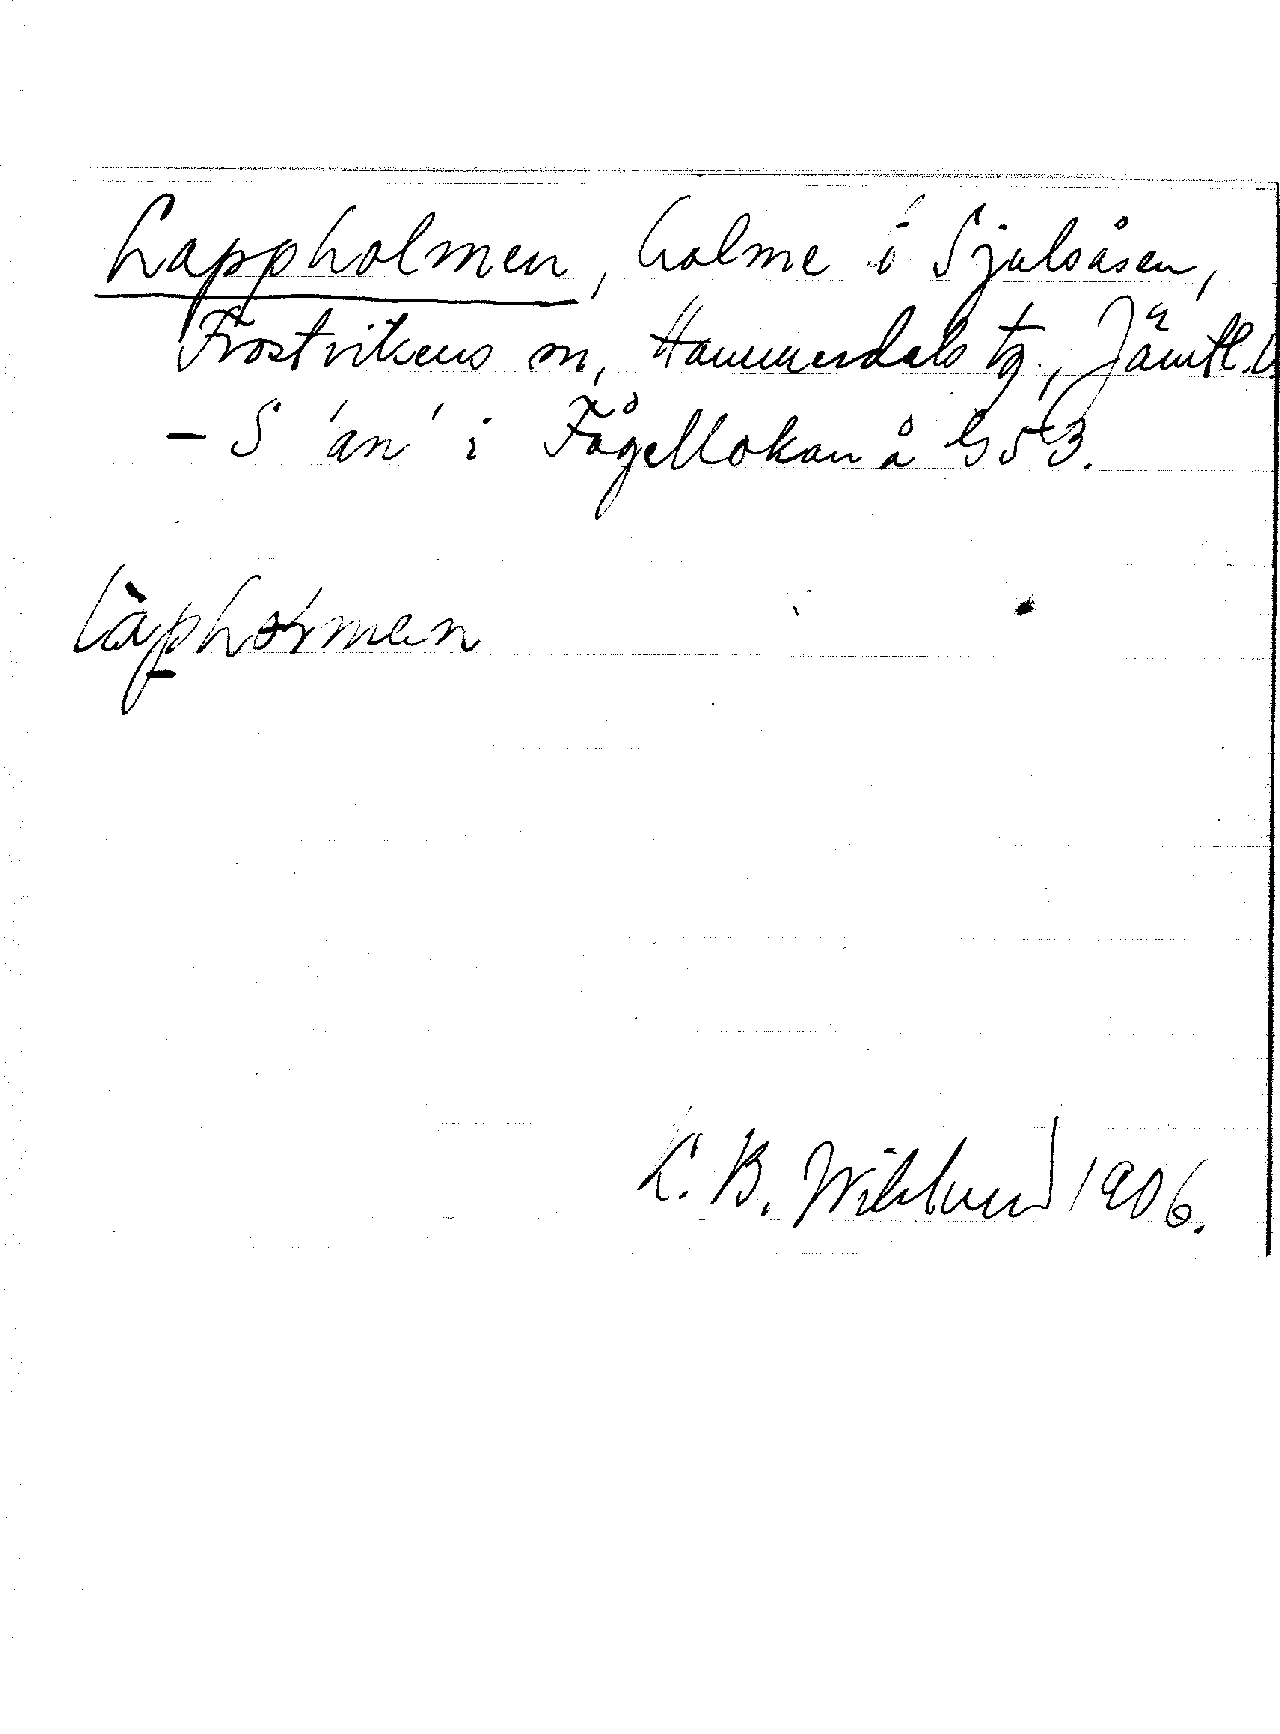 Lappholmen, holme i Sjulsåsen,
Frostvikens sn, Hammerdals tg, Jämtl. l.
– S 'än' i Fågellokan å G 5 B.
làpholmen
K. B. Wiklund 1906.